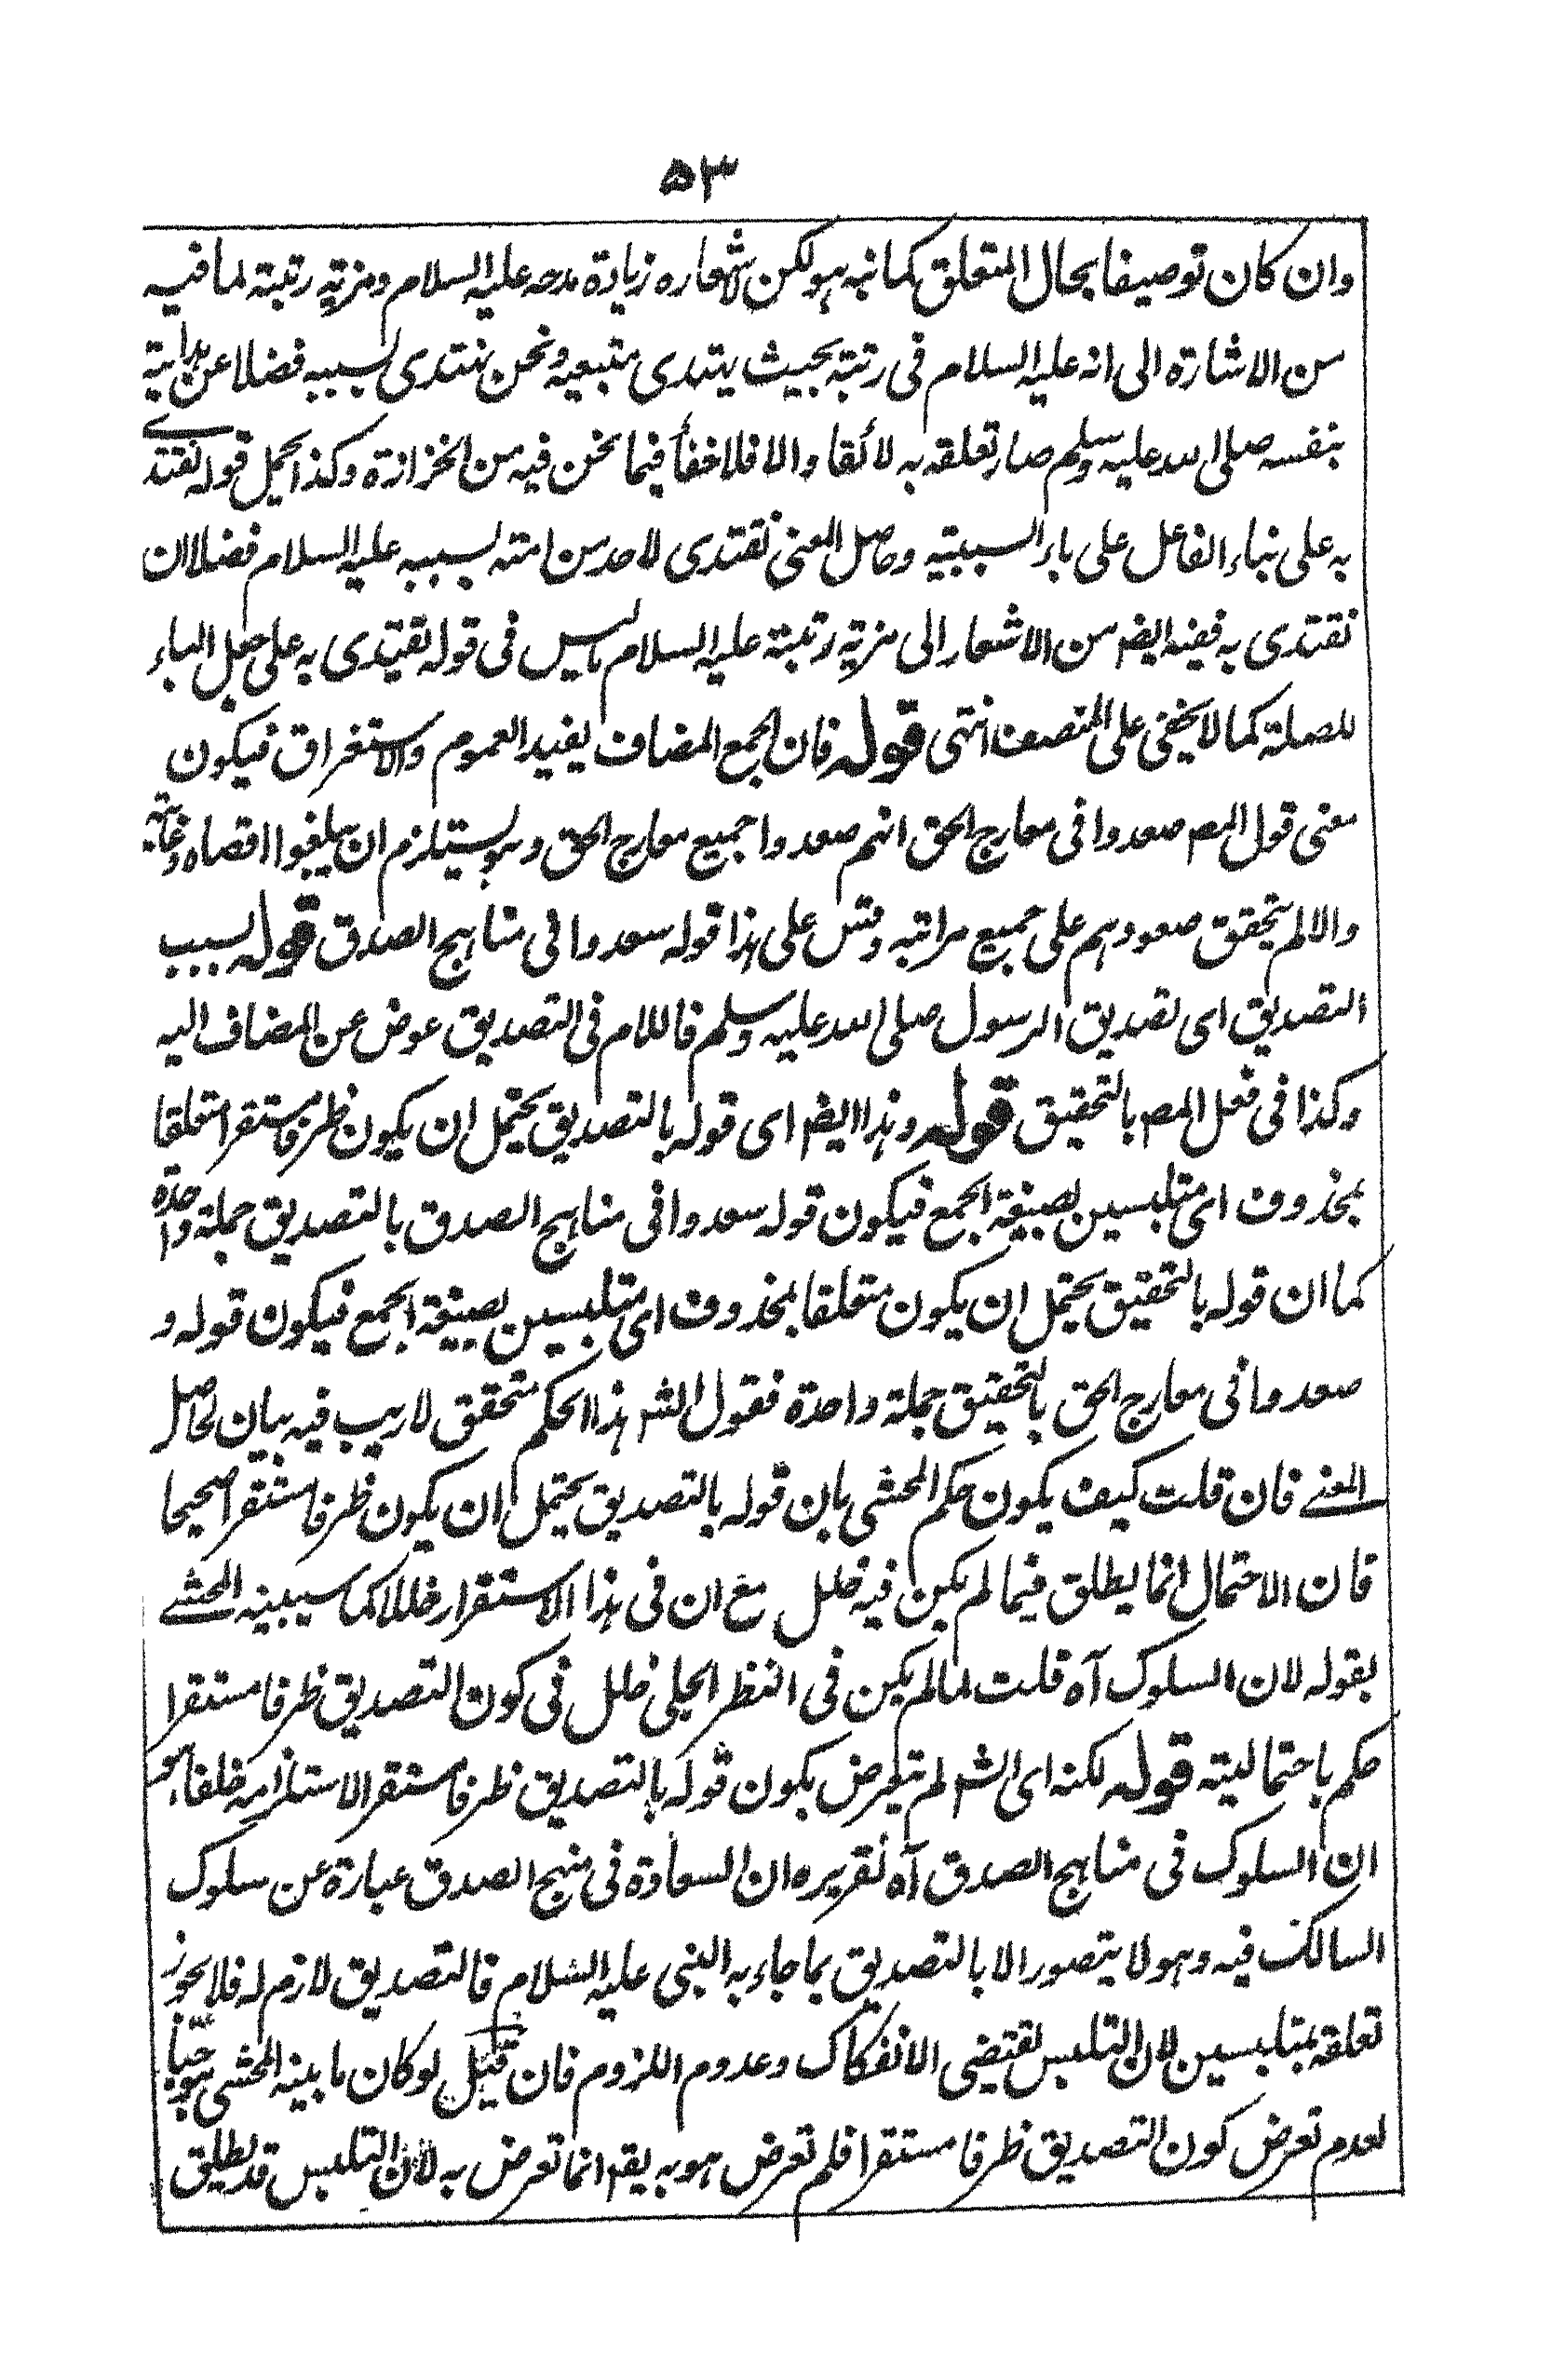 ٥٣
وان كان توصيفا بحال المتعلق كما نبه هو لكن لاشعاره زيادة مدحه عليه السلام ومزية رتبته لما فيه
من الاشارة الى انه عليه السلام فى رتبة بحيث يهتدى متبعيه ونحن نهتدى بسببه فضلا عن هدايته
بنفسه صلى الله عليه وسلم صار تعلقه به لائقا والا فلا خفأ فيما نحن فيه من الخزازة وكذا حمل قوله نقتدى
به على بناء الفاعل على باء السببية وحاصل المعنى نقتدى لاحد من امته بسببه عليه السلام فضلا ان
نقتدى به فيفيد ايضا من الاشعار الى مزية رتبته عليه السلام ما ليس فى قوله نقتدى به على جعل الباء
للصلة كما لا يخفى على المنصف انتهى قوله فان الجمع المضاف يفيد العموم والاستغراق فيكون
معنى قول المصه صعدوا فى معارج الحق انهم صعدوا جميع معارج الحق وهو يستلزم ان يبلغوا اقصاه وغايته
والا لم يتحقق صعودهم على جميع مراتبه وقس على هذا قوله سعدوا فى مناهج الصدق قوله بسبب
التصديق اى تصديق الرسول صلى الله عليه وسلم فاللام فى التصديق عوض عن المضاف اليه
وكذا فى فعل المصه بالتحقيق قوله وهذا ايضا اى قوله بالتصديق يحتمل ان يكون ظرفا مستقرا متعلقا
بمحذوف اى متلبسين بصيغة الجمع فيكون قوله سعدوا فى مناهج الصدق بالتصديق جملة واحدة
كما ان قوله بالتحقيق يحتمل ان يكون متعلقا بمحذوف اى متلبسين بصيغة الجمع فيكون قوله و
صعدوا فى معارج الحق بالتحقيق جملة واحدة فقول الشه هذا الحكم متحقق لا ريب فيه بيان لحاصل
المعنے فان قلت كيف يكون حكم المحشى بان قوله بالتصديق يحتمل ان يكون ظرفا مستقرا صحيحا
فان الاحتمال انما يطلق فيما لم يكن فيه خلل مع ان فى هذا الاستقرار خللا كما سيبينه المحشے
بقوله لان السلوك آه قلت لما لم يكن فى النظر الجلى خلل فى كون التصديق ظرفا مستقرا
حكم باحتماليته قوله لكنه اى الشه لم يتعرض بكون قوله بالتصديق ظرفا مستقرا لاستلزامه خلفا
ان السلوك فى مناهج الصدق آه تقريره ان السعادة فى منهج الصدق عبارة عن سلوك
السالك فيه وهو لا يتصور الا بالتصديق بما جاء به النبى عليه السلام فالتصديق لازم له فلا يجوز
تعلقه بمتلبسين لان التلبس يقتضى الانفكاك وعدوم اللزوم فان قيل لو كان ما بينه المحشى موجبا
لعدم تعرض كون التصديق ظرفا مستقرا فلم تعرض هو به يقه انما تعرض به لان التلبس قد يطلق